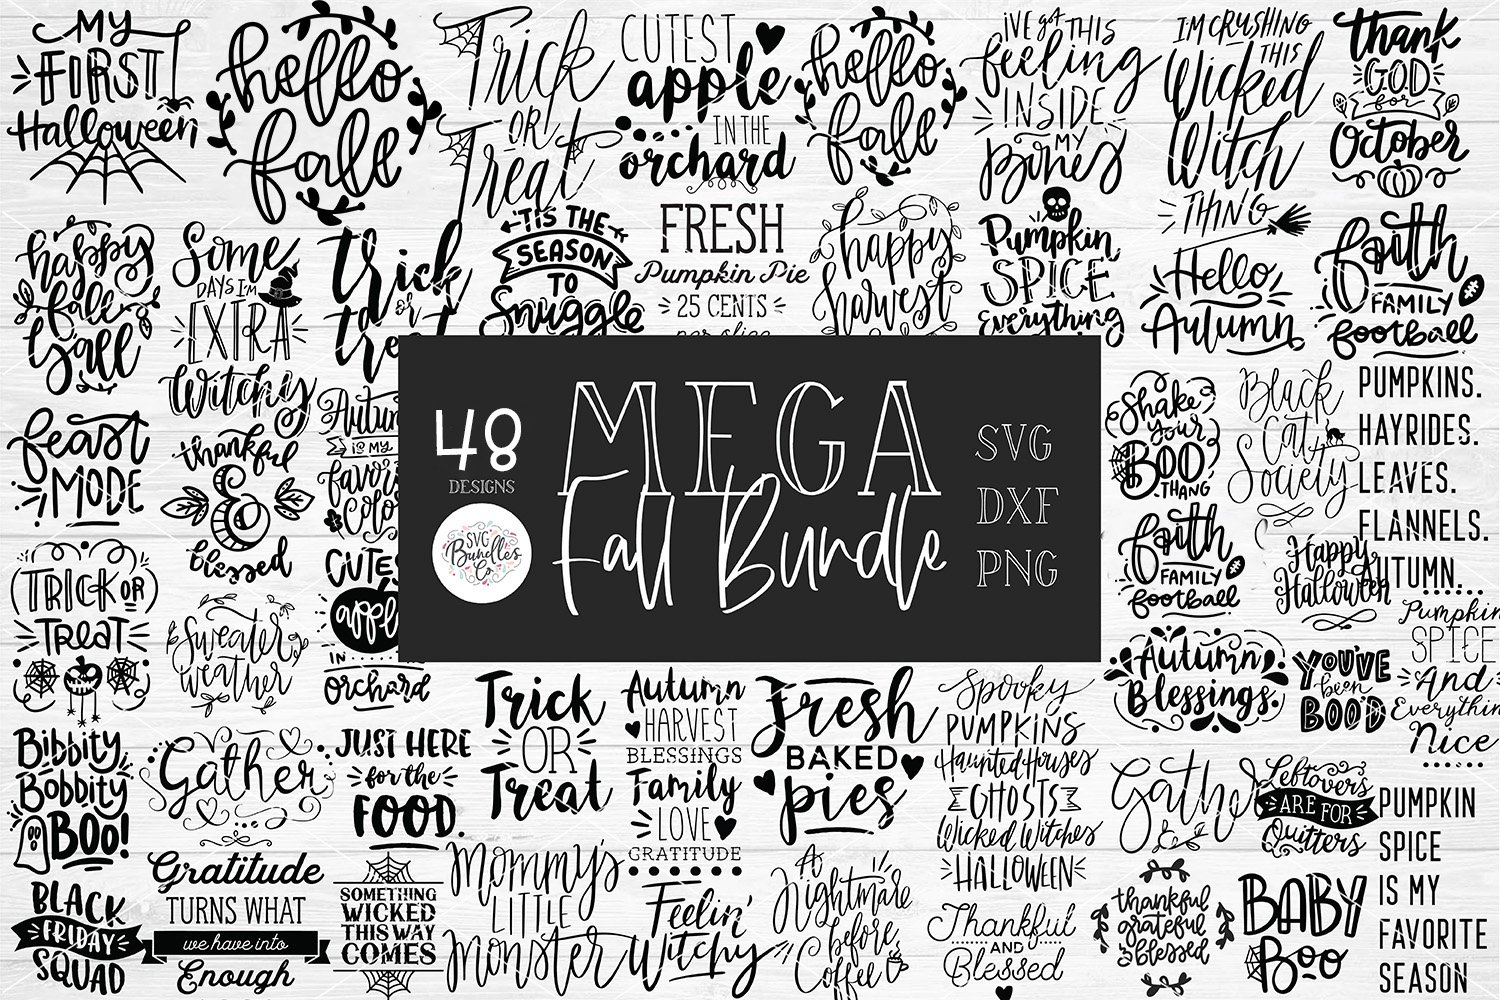 MY
FIRST
Halloween
hello
fall
Trick
OR
Treat
CUTEST
apple
IN THE
orchard
hello
fall
I'VE got THIS
feeling
INSIDE
MY
Bones
I'M CRUSHING
THIS
Wicked
Witch
THING
Thank
GOD
for
October
happy
fall
Y'all
Some
DAYS I'M
EXTRA
Witchy
trick
or
'TIS THE
SEASON
TO
Snuggle
FRESH
Pumpkin Pie
25 CENTS
per slice
happy
harvest
Pumpkin
SPICE
Everything
Hello
Autumn
Faith
FAMILY
football
feast
MODE
thankful
&
blessed
Autumn
IS MY
MEGA
Fall Bundle
48
DESIGNS
SVG
Bundles
Co.
SVG
DXF
PNG
Shake
your
BOO
THANG
Black
Cat
Society
PUMPKINS.
HAYRIDES.
LEAVES.
FLANNELS.
AUTUMN.
TRICK OR
TREAT
Sweater
weather
IN
orchard
Faith
FAMILY
football
Happy
Halloween
Pumpkin
SPICE
And
Everything
Nice
Autumn
Blessings
YOU'VE
been
BOO'D
Bibbity
Bobbity
BOO!
Gather
JUST HERE
for the
FOOD.
Trick
OR
Treat
Autumn
HARVEST
BLESSINGS
Family
LOVE
GRATITUDE
Fresh
BAKED
pies
Spooky
PUMPKINS
Haunted Houses
GHOSTS
Wicked Witches
HALLOWEEN
Gather
Leftovers
ARE FOR
Quitters
PUMPKIN
SPICE
IS MY
FAVORITE
SEASON
BLACK
FRIDAY
SQUAD
Gratitude
TURNS WHAT
we have into
Enough
SOMETHING
WICKED
THIS WAY
COMES
Mommy's
LITTLE
Monster
Feelin'
Witchy
A
Nightmare
before
Coffee
Thankful
AND
Blessed
thankful
grateful
blessed
BABY
Boo